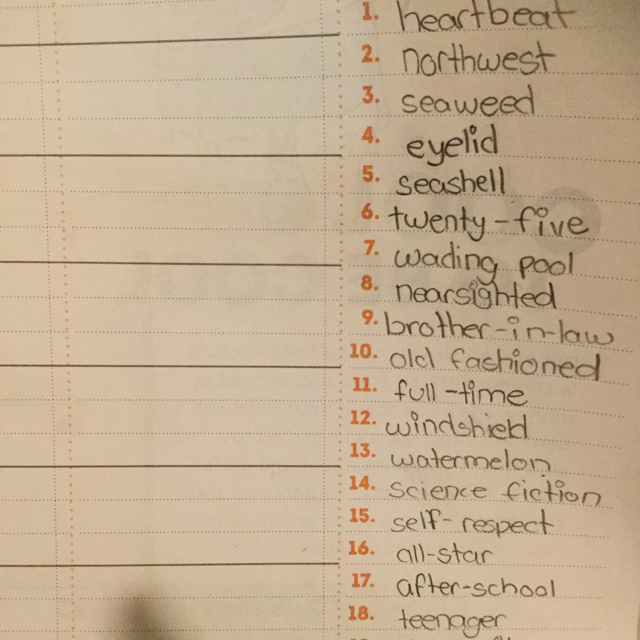 1. heartbeat
2. northwest
3. seaweed
4. eyelid
5. seashell
6. twenty-five
7. wading pool
8. nearsighted
9. brother-in-law
10. old fashioned
11. full-time
12. windshield
13. watermelon
14. science fiction
15. self-respect
16. all-star
17. after-school
18. teenager